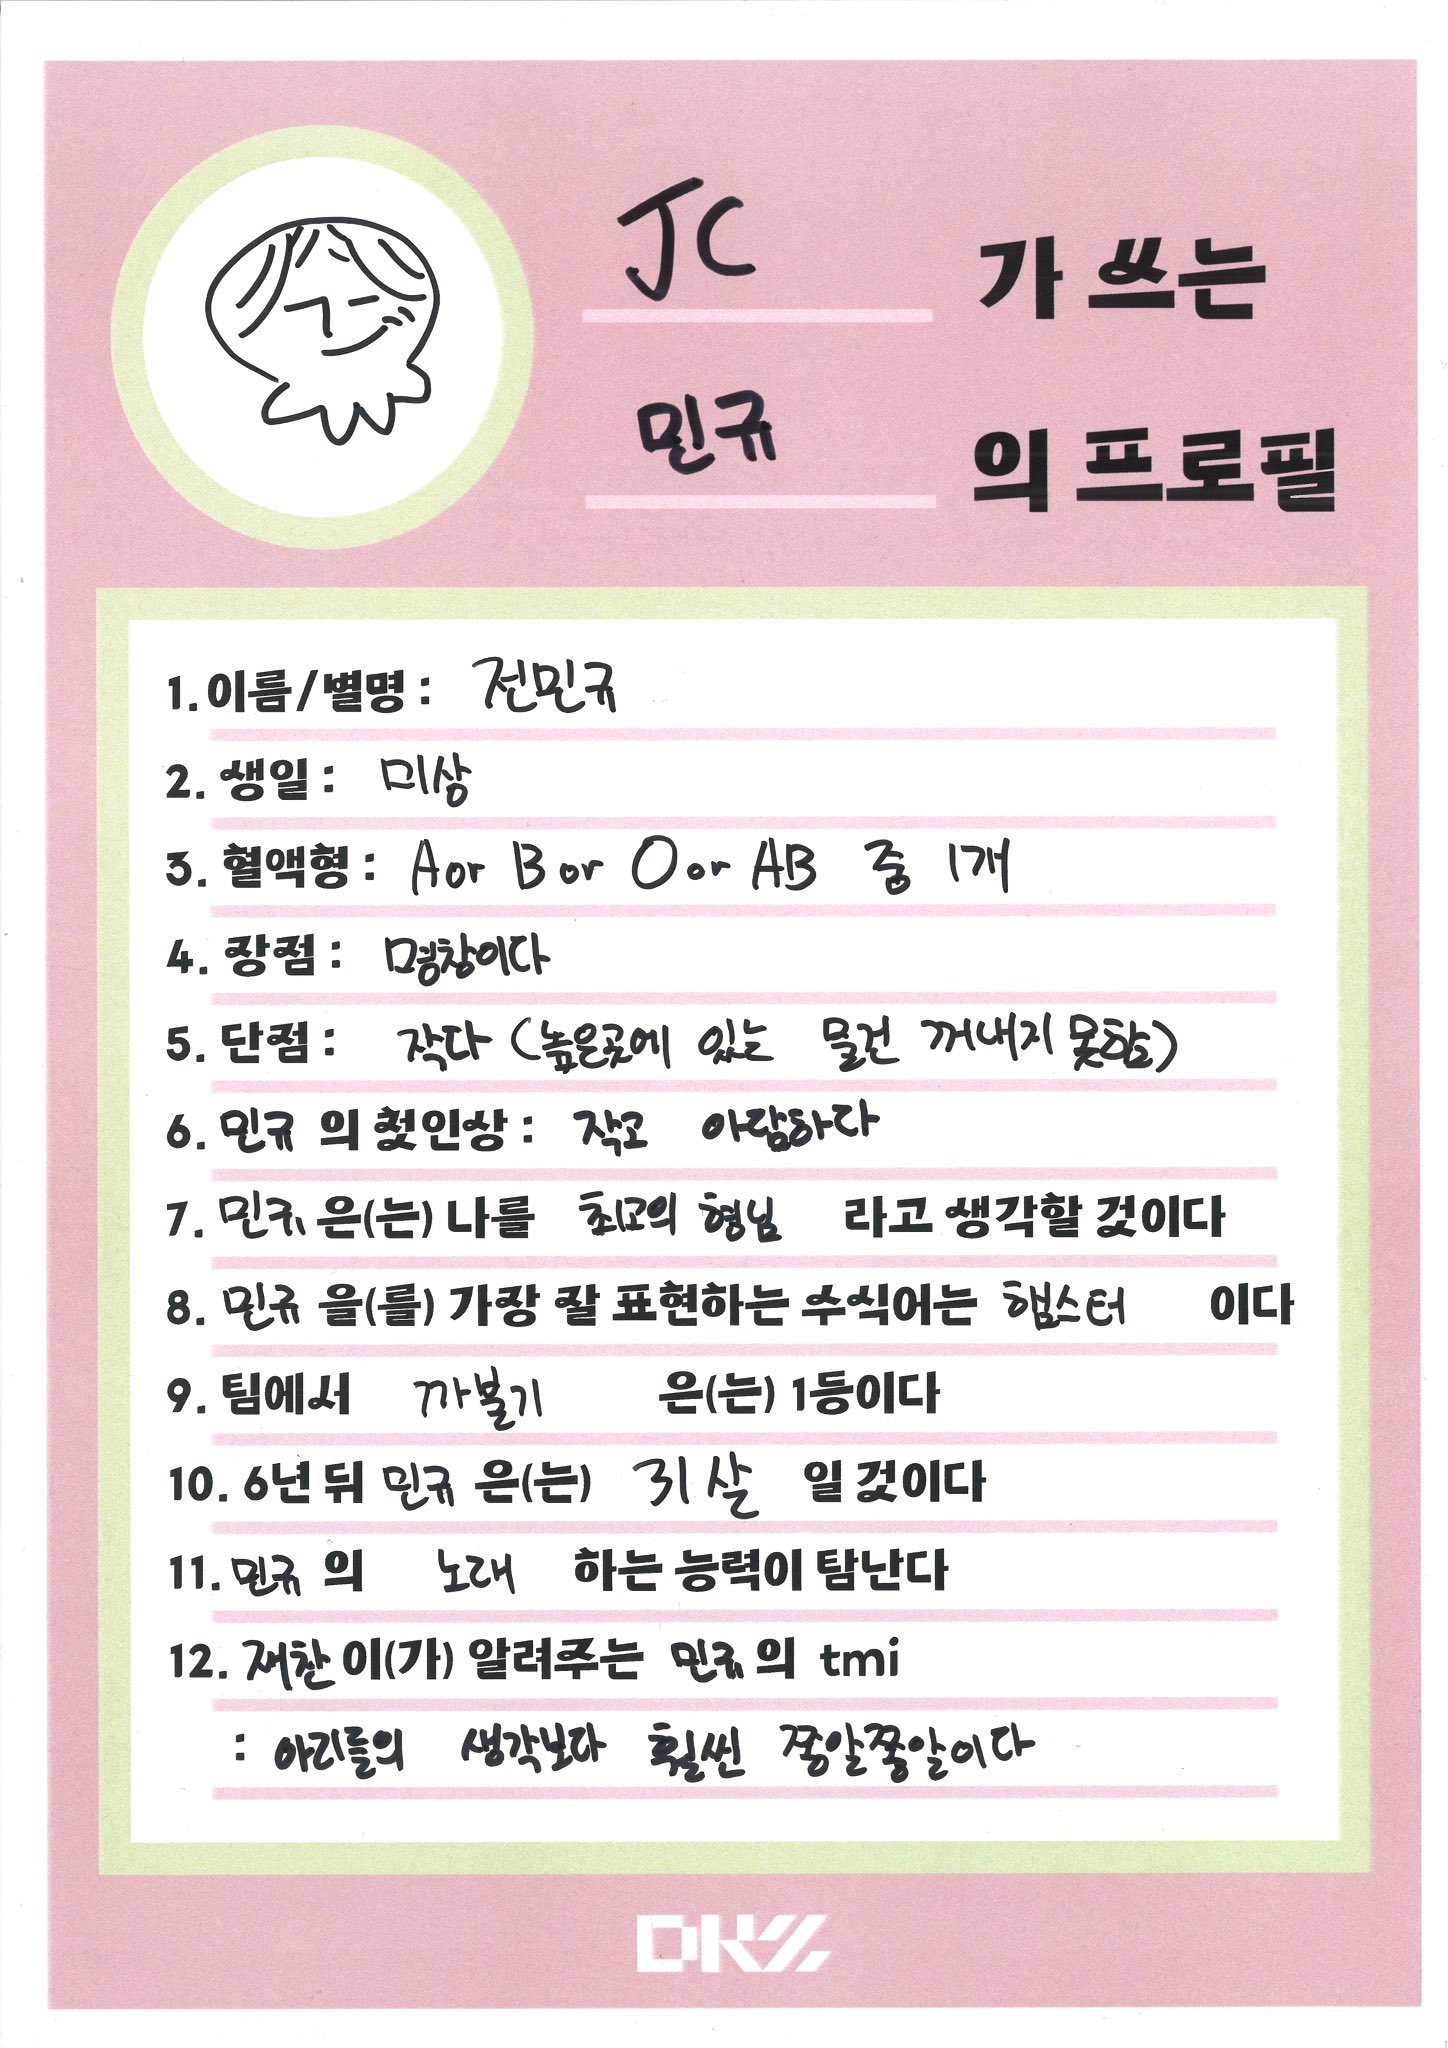 JC 가 쓰는
민규 의 프로필
1. 이름/별명 : 전민규
2. 생일 : 미상
3. 혈액형 : A or B or O or AB 중 1개
4. 장점 : 명창이다
5. 단점 : 작다 (높은곳에 있는 물건 꺼내지 못함)
6. 민규 의 첫인상 : 작고 아담하다
7. 민규 은(는) 나를 최고의 형님 라고 생각할 것이다
8. 민규 을(를) 가장 잘 표현하는 수식어는 햄스터 이다
9. 팀에서 까불기 은(는) 1등이다
10. 6년 뒤 민규 은(는) 31살 일 것이다
11. 민규 의 노래 하는 능력이 탐난다
12. 재찬 이(가) 알려주는 민규 의 tmi
: 아리들의 생각보다 훨씬 쫑알쫑알이다
DKZ